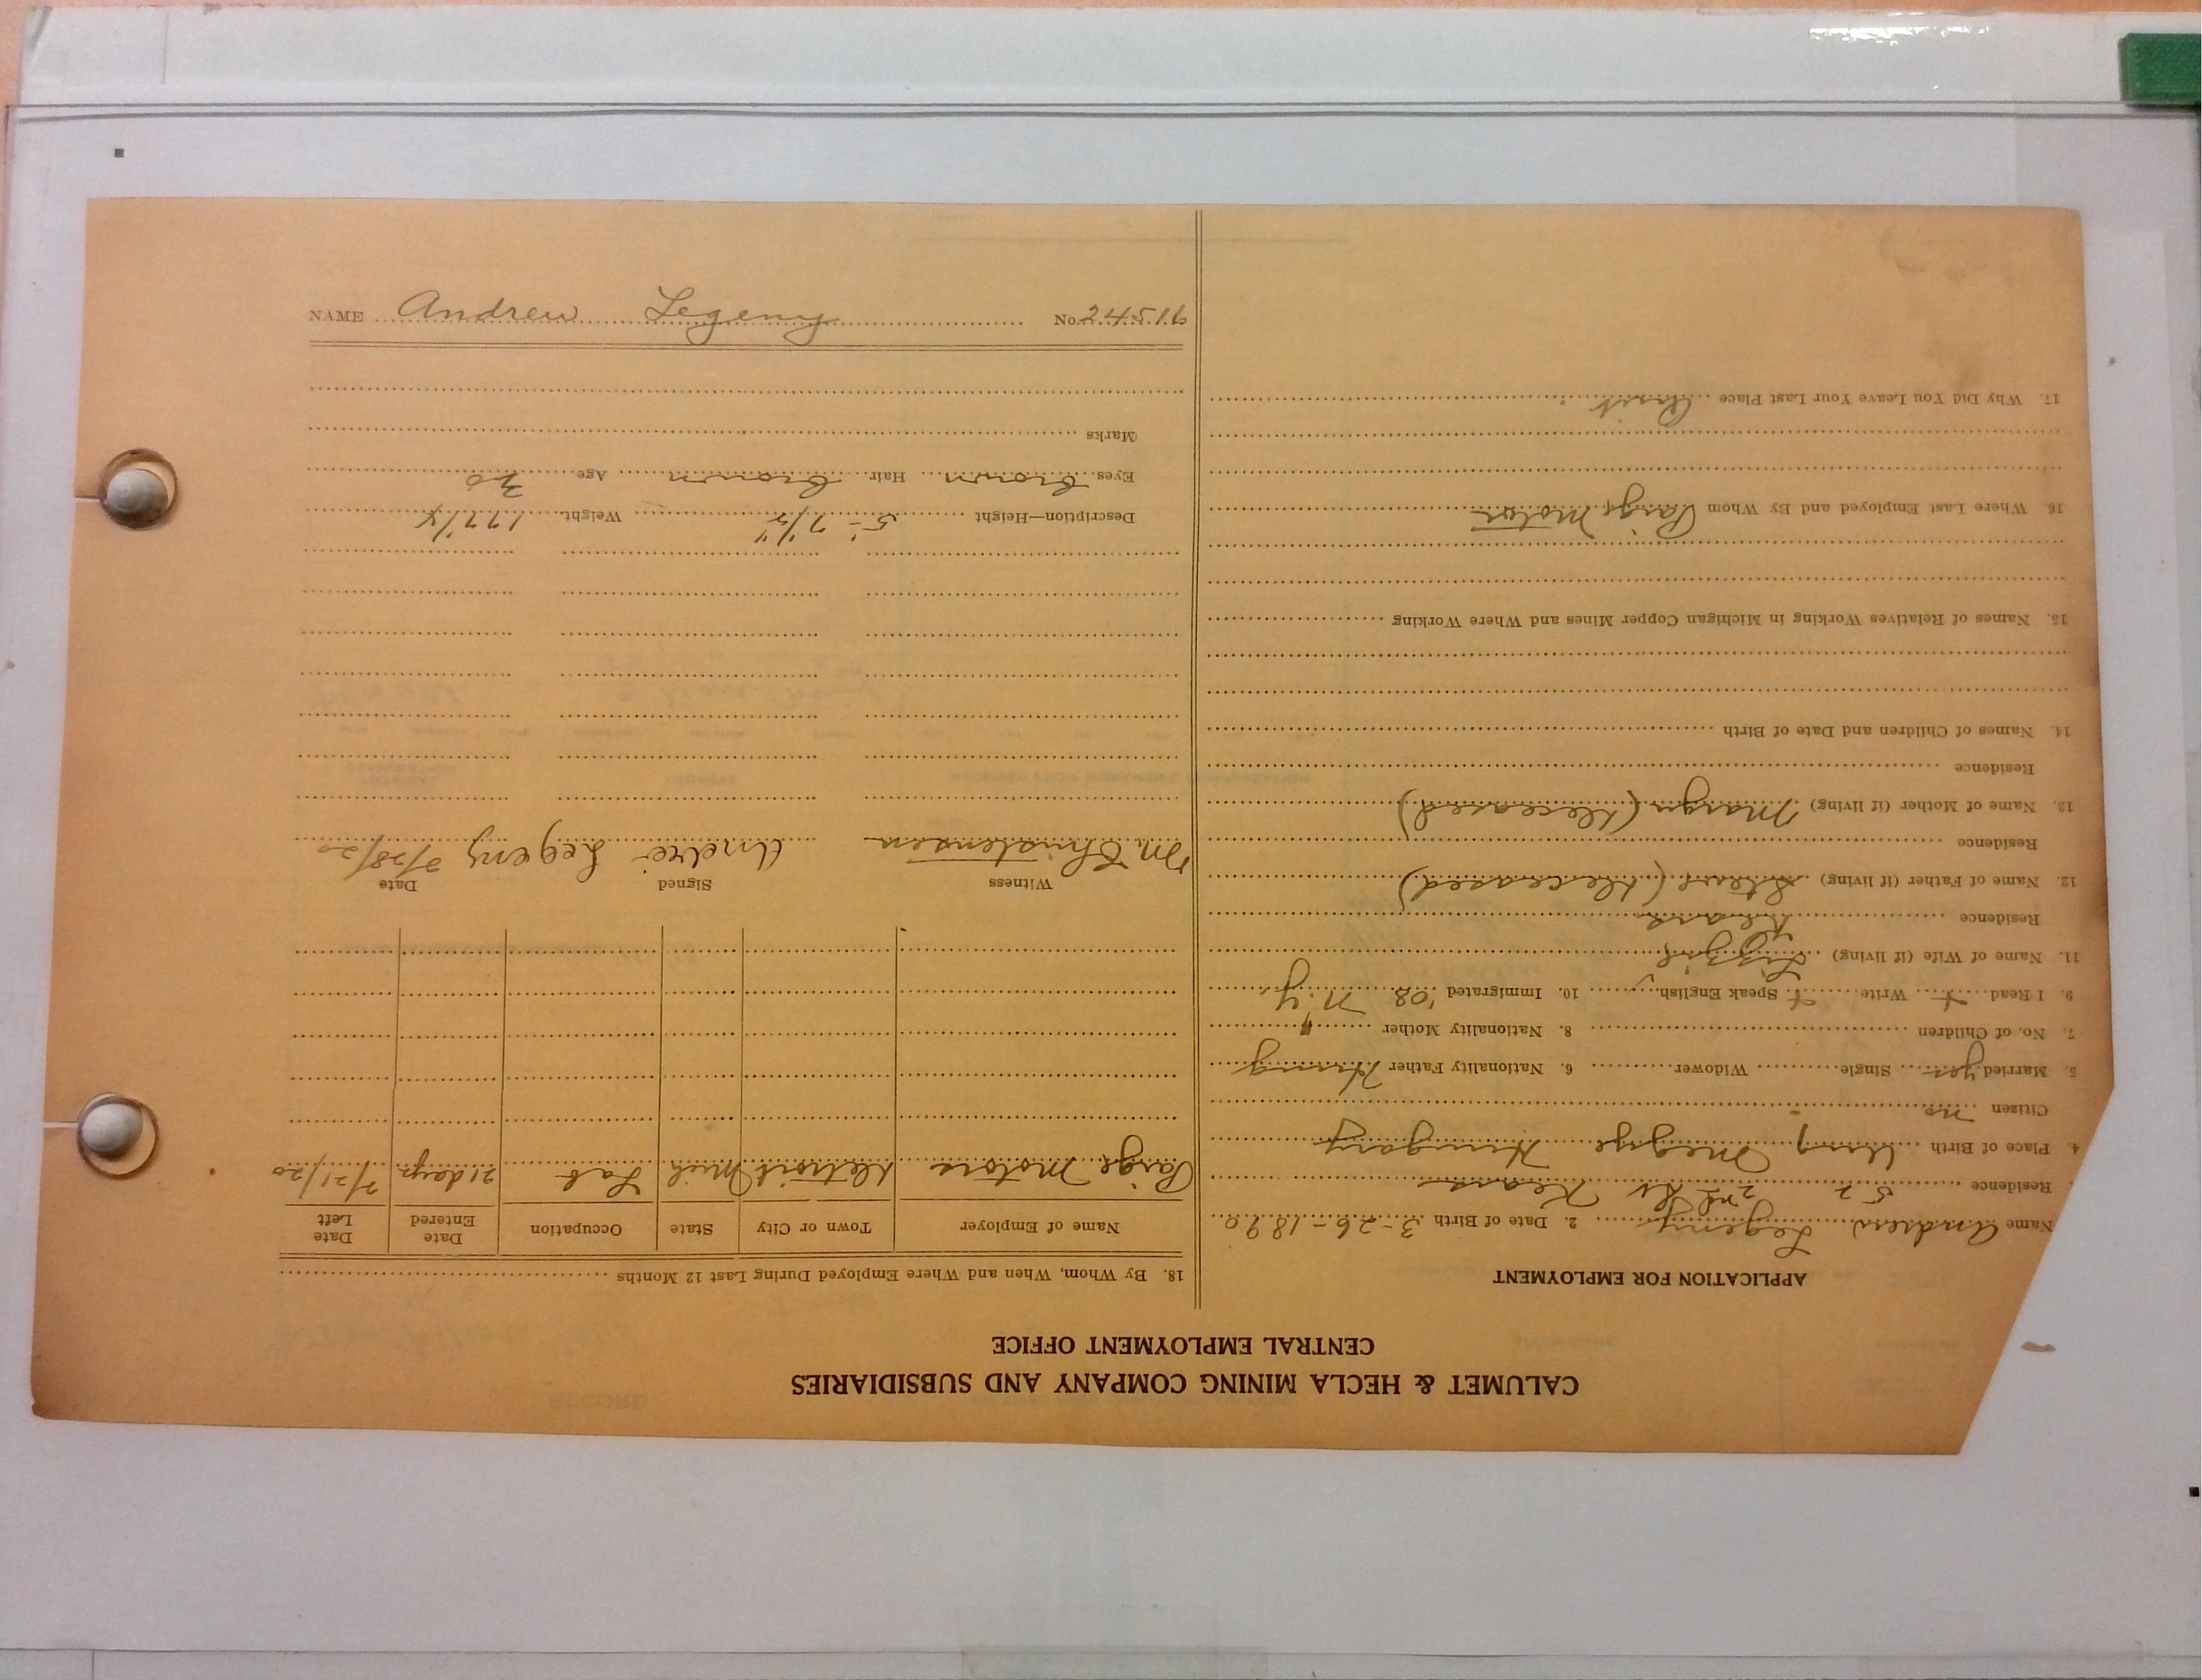 CALUMET & HECLA MINING COMPANY AND SUBSIDIARIES
CENTRAL EMPLOYMENT OFFICE
APPLICATION FOR EMPLOYMENT
Name Andrew Legeny 2. Date of Birth 3-26-1890
Residence 52 2nd St Kearsarge
4. Place of Birth Ung Megye Hungary
Citizen no
5. Married yes Single Widower 6. Nationality Father Hung
7. No. of Children 8. Nationality Mother "
9. I Read + Write + Speak English 10. Immigrated '08 N.Y.
11. Name of Wife (if living) Lizzie
Residence
12. Name of Father (if living) Steve (deceased)
Residence
13. Name of Mother (if living) Mary (deceased)
Residence
14. Names of Children and Date of Birth
15. Names of Relatives Working in Michigan Copper Mines and Where Working
16. Where Last Employed and By Whom Paige Motor
17. Why Did You Leave Your Last Place Quit
18. By Whom, When and Where Employed During Last 12 Months
Name of Employer Town or City State Occupation Date Entered Date Left
Paige Motors Detroit Mich Lab 21 days 7/21/20
Witness Signed Date
M. Christensen Andre Legeny 7/28/20
Description—Height 5'-7 1/2" Weight 177 1/2
Eyes Brown Hair Brown Age 30
Marks
NAME Andrew Legeny No. 24516